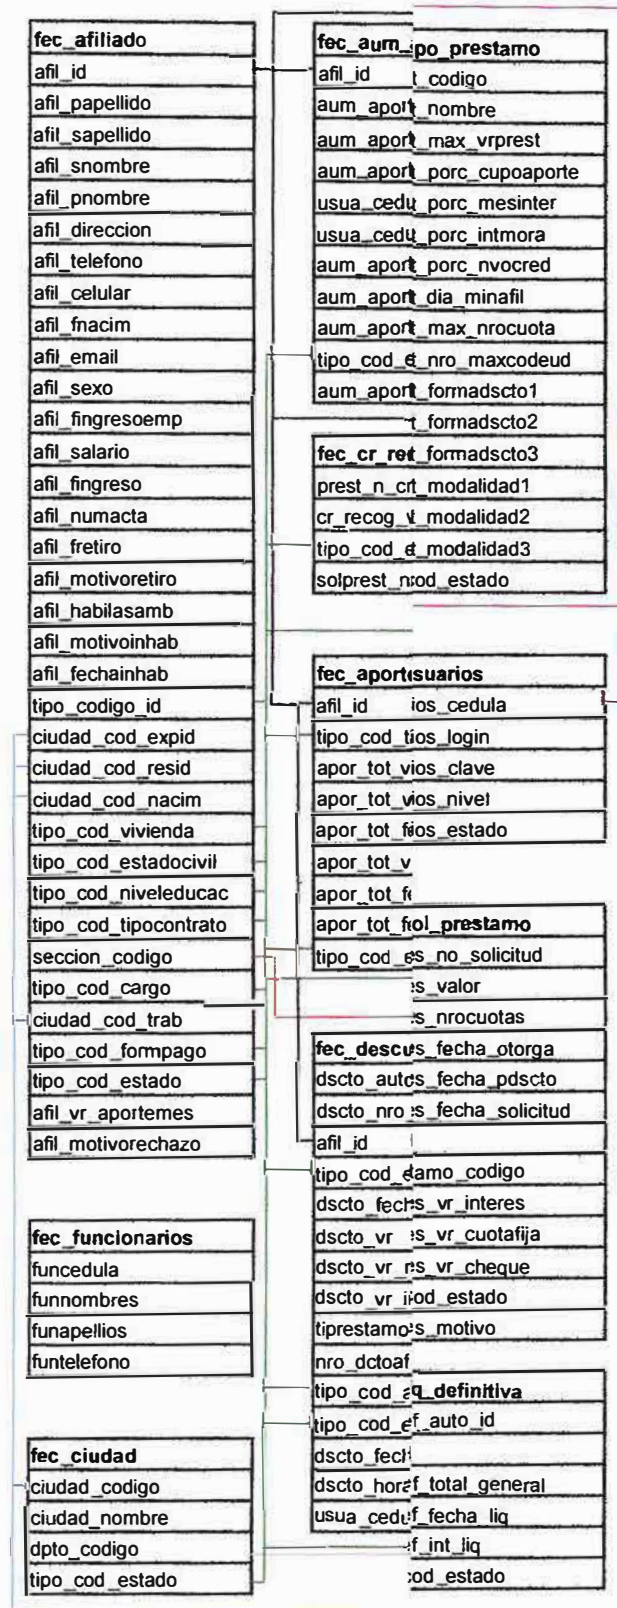 fec_afiliado
afil_id
afil_papellido
afil_sapellido
afil_snombre
afil_pnombre
afil_direccion
afil_telefono
afil_celular
afil_fnacim
afil_email
afil_sexo
afil_fingresoemp
afil_salario
afil_fingreso
afil_numacta
afil_fretiro
afil_motivoretiro
afil_habilasamb
afil_motivoinhab
afil_fechainhab
tipo_codigo_id
ciudad_cod_expid
ciudad_cod_resid
ciudad_cod_nacim
tipo_cod_vivienda
tipo_cod_estadocivil
tipo_cod_niveleducac
tipo_cod_tipocontrato
seccion_codigo
tipo_cod_cargo
ciudad_cod_trab
tipo_cod_formpago
tipo_cod_estado
afil_vr_aportemes
afil_motivorechazo
fec_funcionarios
funcedula
funnombres
funapellios
funtelefono
fec_ciudad
ciudad_codigo
ciudad_nombre
dpto_codigo
tipo_cod_estado
fec_aum_
afil_id
aum_aport
aum_aport
aum_aport
usua_cedu
usua_cedu
aum_aport
aum_aport
aum_aport
tipo_cod_e
aum_aport
fec_cr_re
prest_n_cr
cr_recog_
tipo_cod_e
solprest_n
fec_aport
afil_id
tipo_cod_t
apor_tot_v
apor_tot_v
apor_tot_f
apor_tot_v
apor_tot_fe
apor_tot_f
tipo_cod_e
fec_descu
dscto_aut
dscto_nro
afil_id
tipo_cod_e
dscto_fech
dscto_vr_
dscto_vr_r
dscto_vr_i
tiprestamo
nro_dctoaf
tipo_cod_a
tipo_cod_e
dscto_fech
dscto_hora
usua_cedu
po_prestamo
t_codigo
t_nombre
t_max_vrprest
t_porc_cupoaporte
t_porc_mesinter
t_porc_intmora
t_porc_nvocred
t_dia_minafil
t_max_nrocuota
t_nro_maxcodeud
t_formadscto1
t_formadscto2
t_formadscto3
t_modalidad1
t_modalidad2
t_modalidad3
cod_estado
suarios
ios_cedula
ios_login
ios_clave
ios_nivel
ios_estado
ol_prestamo
es_no_solicitud
es_valor
es_nrocuotas
es_fecha_otorga
es_fecha_pdscto
es_fecha_solicitud
tamo_codigo
es_vr_interes
es_vr_cuotafija
es_vr_cheque
cod_estado
es_motivo
q_definitiva
f_auto_id
f_total_general
f_fecha_liq
f_int_liq
cod_estado